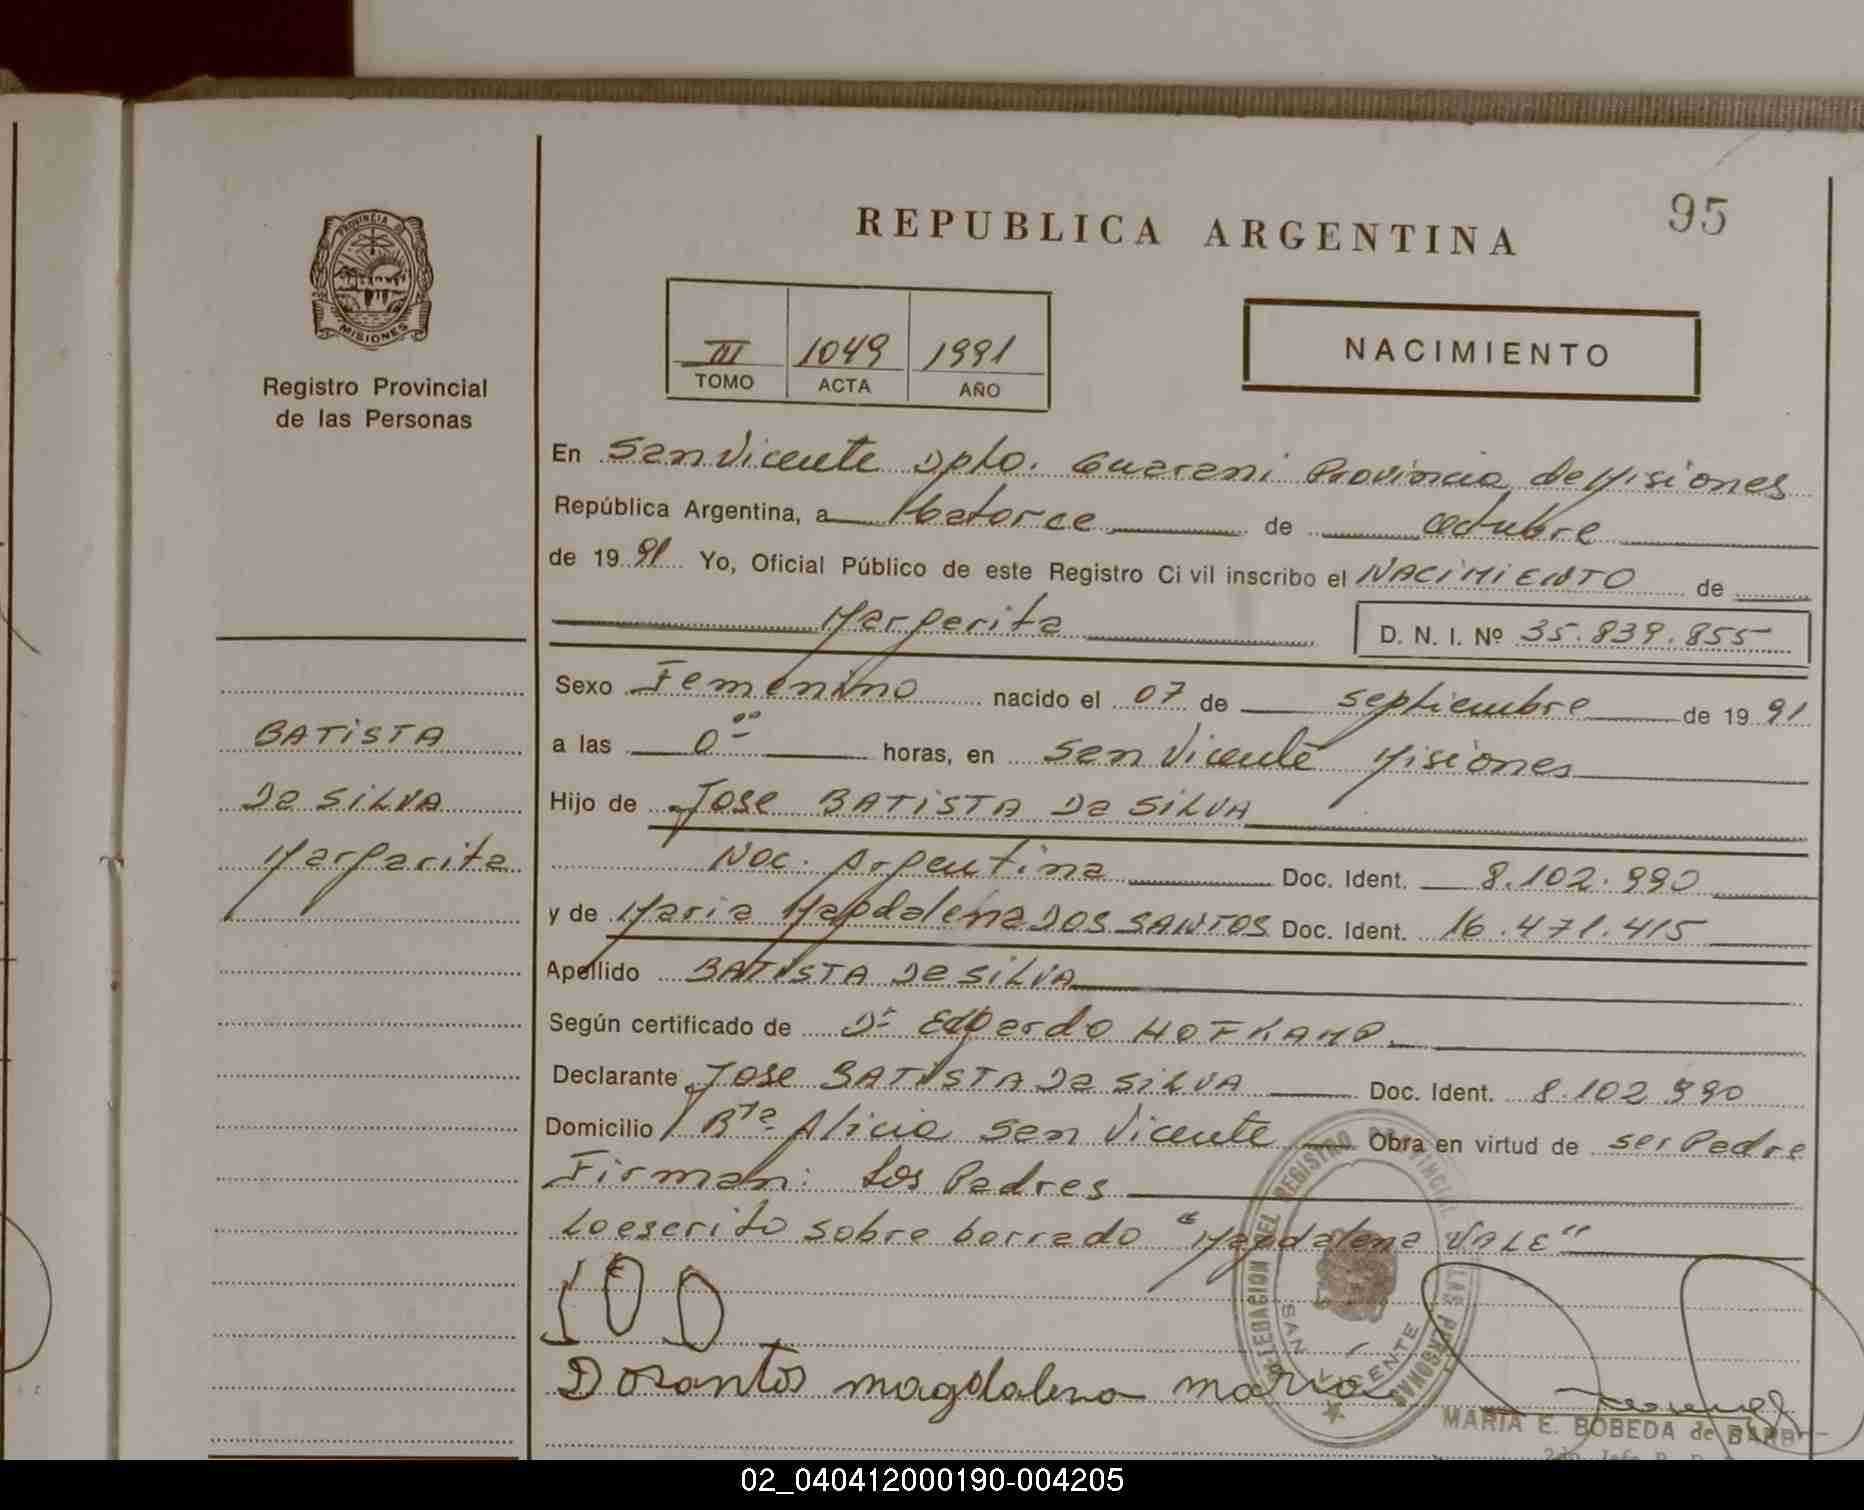 95
REPUBLICA ARGENTINA
PROVINCIA
MISIONES
Registro Provincial
de las Personas
III 1049 1991
TOMO ACTA AÑO
NACIMIENTO
En San Vicente Dpto. Guarani Provincia de Misiones
República Argentina, a Catorce de octubre
de 19 91 Yo, Oficial Público de este Registro Civil inscribo el NACIMIENTO de
Margarita D. N. I. Nº 35.839.855
Sexo Femenino nacido el 07 de septiembre de 19 91
a las 0 00 horas, en San Vicente Misiones
Hijo de Jose BATISTA Da SILVA
Nac. Argentina Doc. Ident. 8.102.990
y de Maria Magdalena DOS SANTOS Doc. Ident. 16.471.415
Apellido BATISTA De SILVA
Según certificado de Dr Edgardo HOFKAMP.
Declarante Jose BATISTA Da SILVA Doc. Ident. 8.102.990
Domicilio Bª Alicia San Vicente Obra en virtud de ser Padre
Firman: Los Padres
Lo escrito sobre borrado "Magdalena VALE"
BATISTA
Da SILVA
Margarita
Dosantos magdalena maria
DELEGACION DEL REGISTRO PROVINCIAL DE LAS PERSONAS
SAN VICENTE
MARIA E. BOBEDA de BARB
02_040412000190-004205